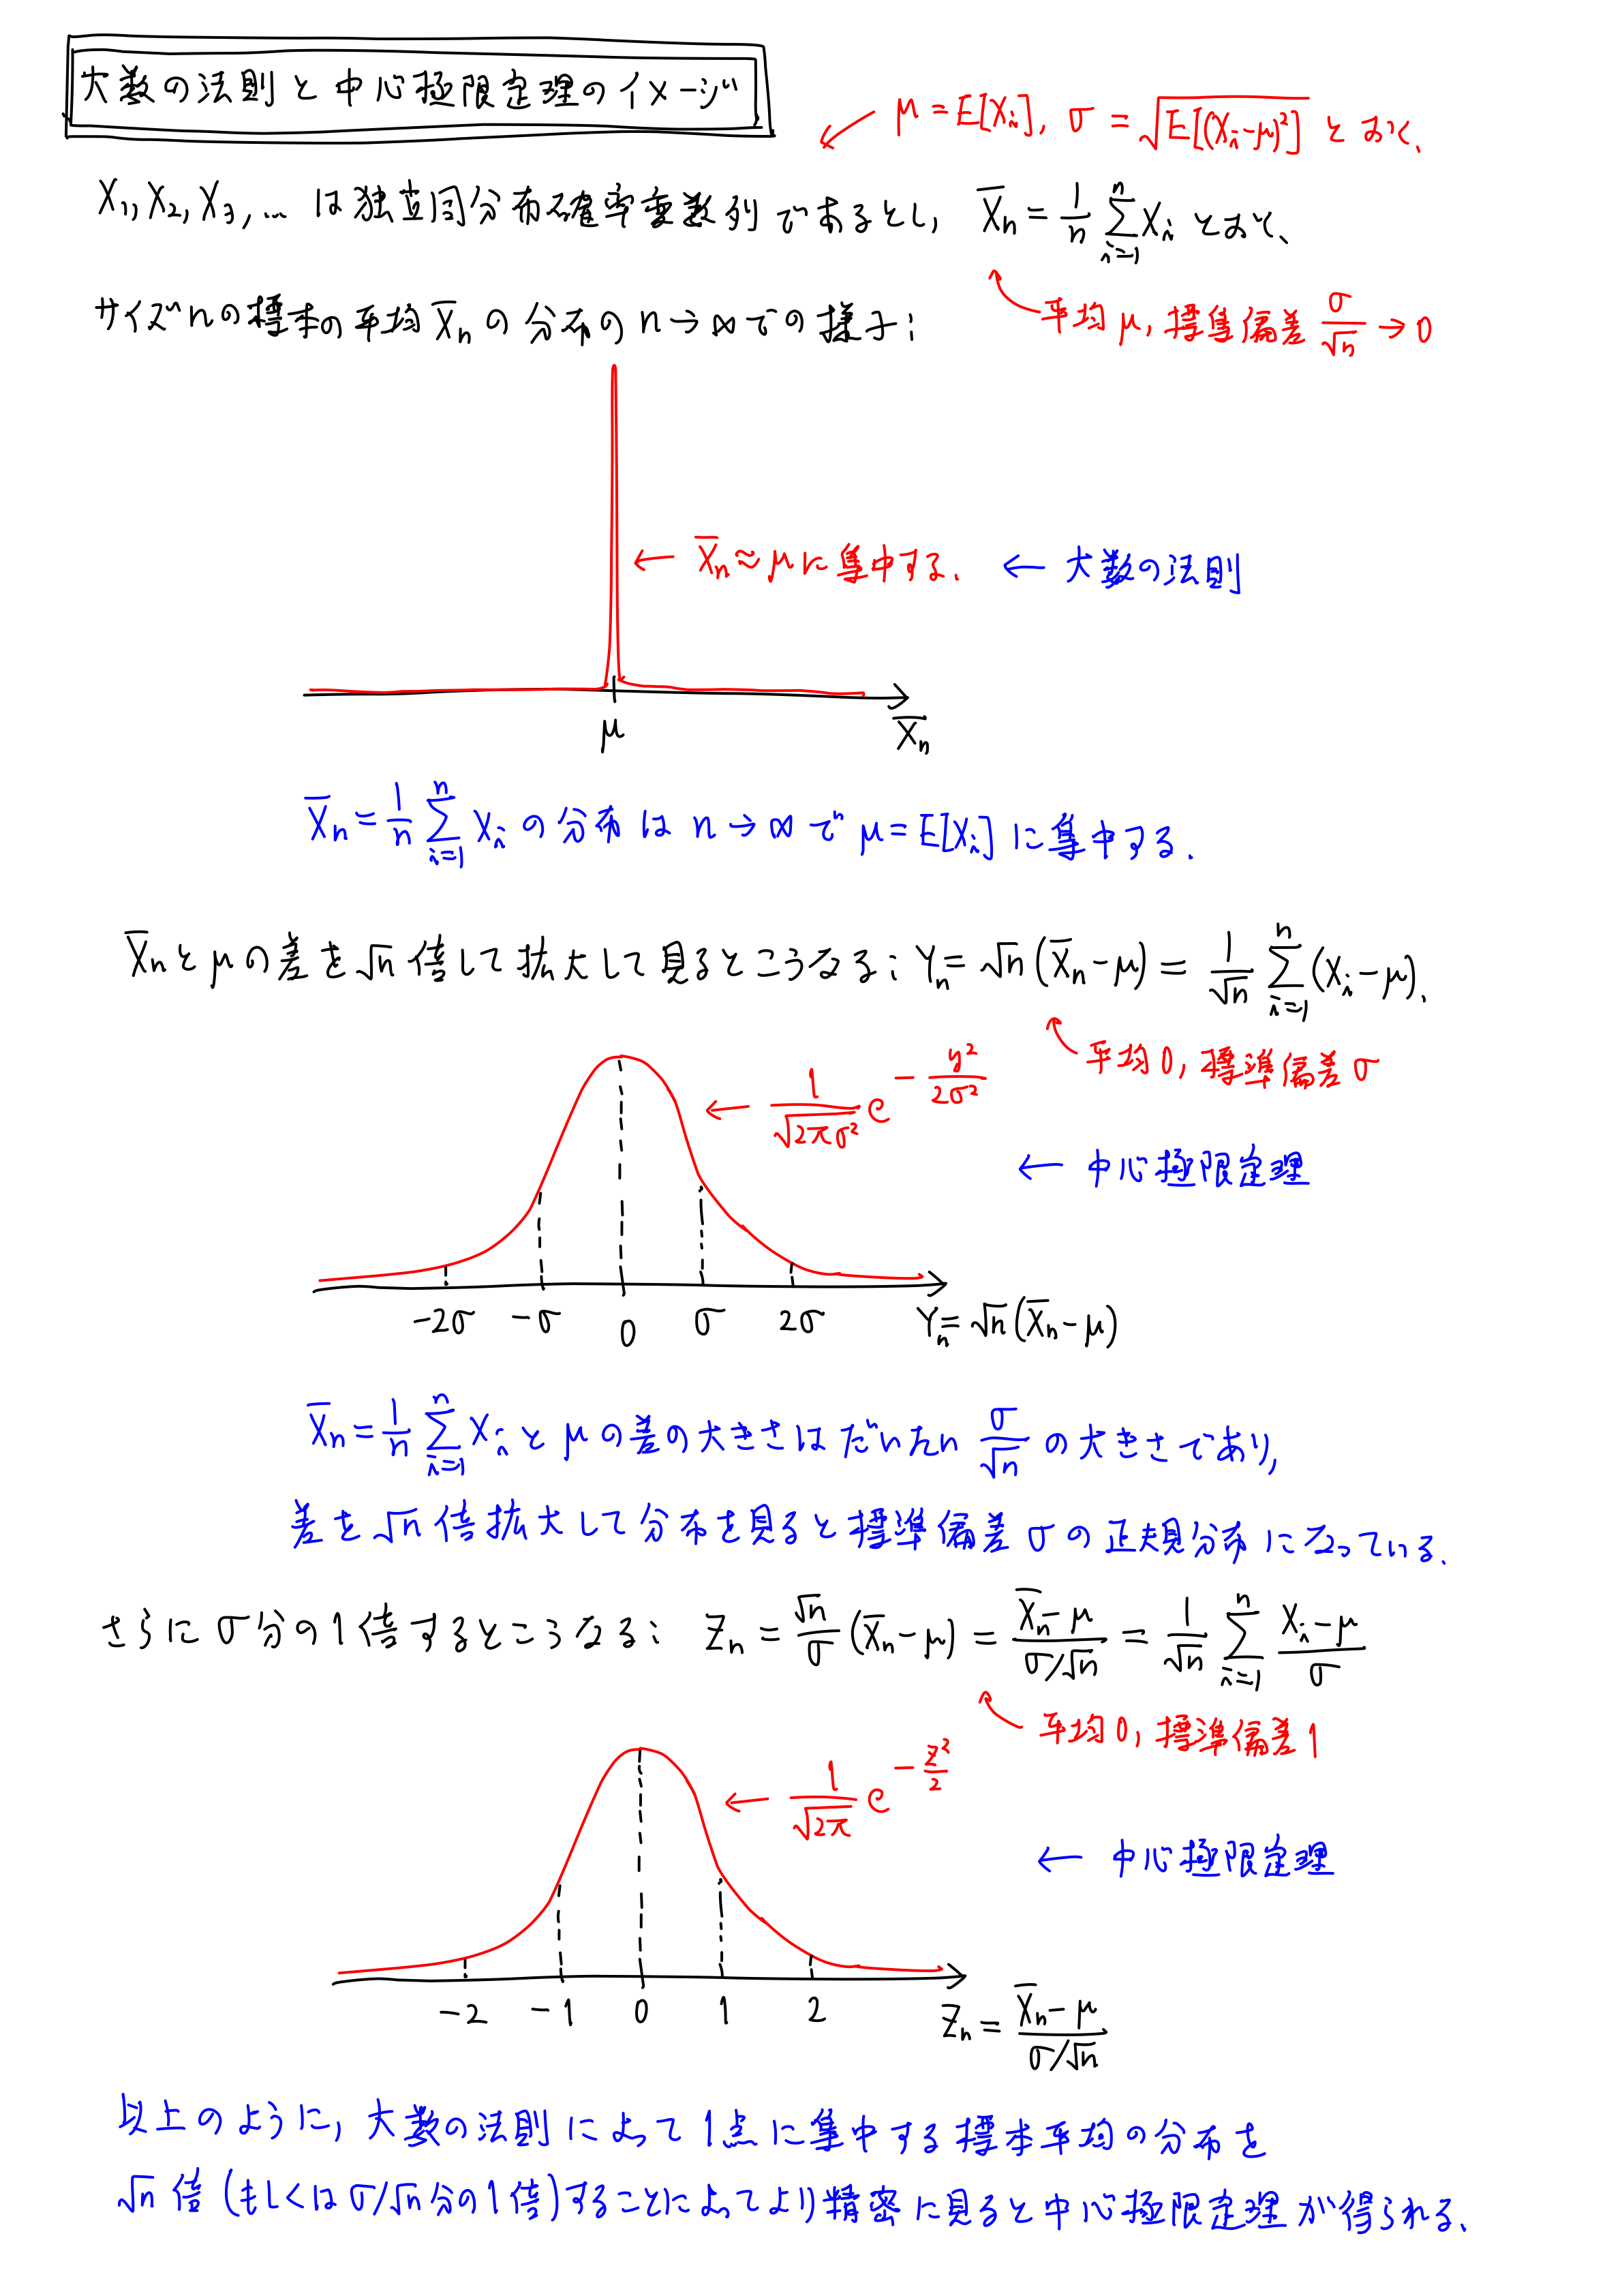 大数の法則と中心極限定理のイメージ
← μ = E[Xi], σ = √(E[(Xi-μ)²]) とおく、
X1, X2, X3, … は独立同分布確率変数列であるとし, X̄n = 1/n ∑_{i=1}^{n} Xi とおく、
↖ 平均 μ, 標準偏差 σ/√n → 0
サイズ n の標本の平均 X̄n の分布の n→∞ での様子:
← X̄n ≈ μ に集中する. ← 大数の法則
μ X̄n
X̄n = 1/n ∑_{i=1}^{n} Xi の分布は n→∞ で μ = E[Xi] に集中する.
X̄n と μ の差を √n 倍して拡大して見るとこうなる: Yn = √n (X̄n - μ) = 1/√n ∑_{i=1}^{n} (Xi - μ).
↖ 平均 0, 標準偏差 σ
← 1/√(2πσ²) e^{-y²/(2σ²)}
← 中心極限定理
-2σ -σ 0 σ 2σ Yn = √n (X̄n - μ)
X̄n = 1/n ∑_{i=1}^{n} Xi と μ の差の大きさはだいたい σ/√n の大きさであり,
差を √n 倍拡大して分布を見ると標準偏差 σ の正規分布になっている.
さらに σ分の1倍するとこうなる: Zn = √n/σ (X̄n - μ) = (X̄n - μ)/(σ/√n) = 1/√n ∑_{i=1}^{n} (Xi - μ)/σ
↖ 平均 0, 標準偏差 1
← 1/√(2π) e^{-z²/2}
← 中心極限定理
-2 -1 0 1 2 Zn = (X̄n - μ)/(σ/√n)
以上のように, 大数の法則によって1点に集中する標本平均の分布を
√n 倍 (もしくは σ/√n 分の1倍) することによってより精密に見ると中心極限定理が得られる、